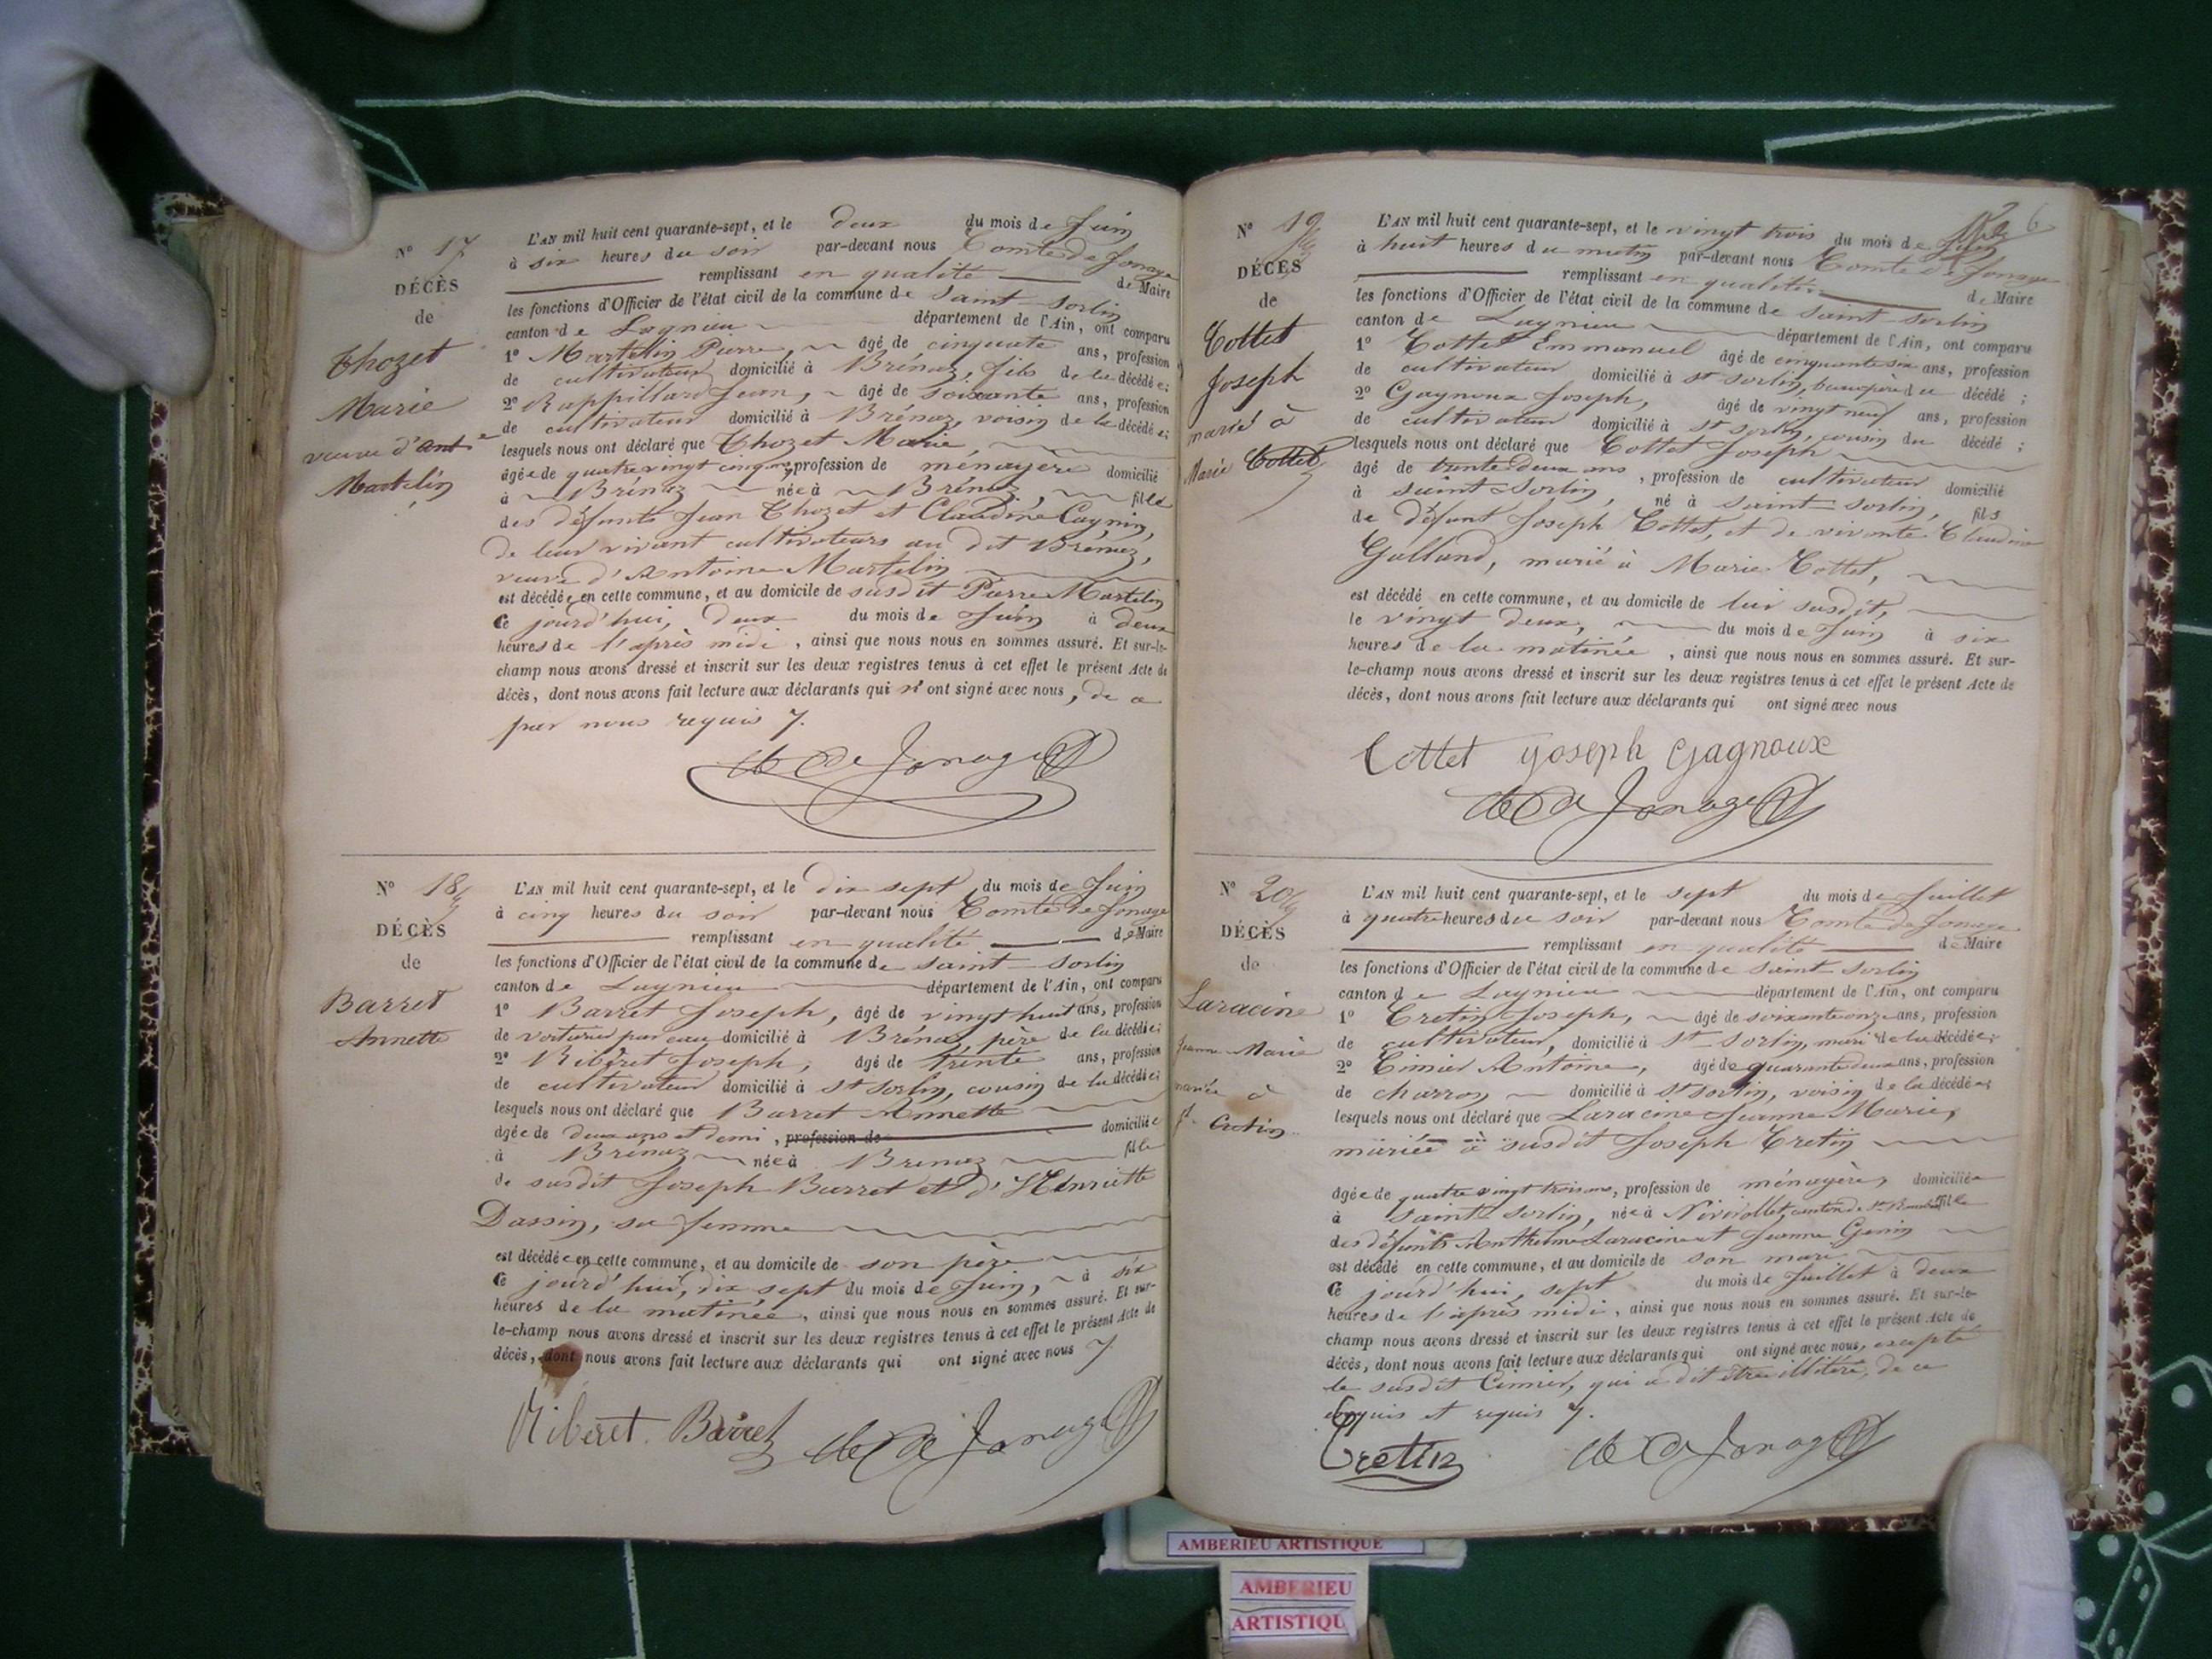 N° 17
DÉCÈS
de
Thozet
Marie
veuve d'Ante
Martelin
L'AN mil huit cent quarante-sept, et le deux du mois de Juin
à six heures du soir par-devant nous Comte de Jonage
remplissant en qualité de Maire
les fonctions d'Officier de l'état civil de la commune de Saint-Sorlin
canton de Lagnieu département de l'Ain, ont comparu
1° Martelin Pierre, âgé de cinquante ans, profession
de cultivateur domicilié à Brénaz, fils de la décédée;
2° Rappillard Jean, âgé de soixante ans, profession
de cultivateur domicilié à Brénaz, voisin de la décédée;
lesquels nous ont déclaré que Thozet Marie,
âgée de quatre vingt cinq ans, profession de ménagère domicilié
à Brénaz née à Brénaz, fille
des défunts Jean Thozet et Claudine Cagnin,
de leur vivant cultivateurs au dit Brénaz,
veuve d'Antoine Martelin
est décédée en cette commune, et au domicile de susdit Pierre Martelin
Ce jourd'hui, deux du mois de Juin à deux
heures de l'après midi, ainsi que nous nous en sommes assuré. Et sur-le-
champ nous avons dressé et inscrit sur les deux registres tenus à cet effet le présent Acte de
décès, dont nous avons fait lecture aux déclarants qui n'ont signé avec nous, de ce
par nous requis
de Jonage
N° 18
DÉCÈS
de
Barret
Annette
L'AN mil huit cent quarante-sept, et le dix sept du mois de Juin
à cinq heures du soir par-devant nous Comte de Jonage
remplissant en qualité de Maire
les fonctions d'Officier de l'état civil de la commune de Saint-Sorlin
canton de Lagnieu département de l'Ain, ont comparu
1° Barret Joseph, âgé de vingt huit ans, profession
de voiturier par eau domicilié à Brénaz, père de la décédée;
2° Ribèret Joseph, âgé de trente ans, profession
de cultivateur domicilié à St Sorlin, cousin de la décédée;
lesquels nous ont déclaré que Barret Annette
âgée de deux ans et demi, profession de domiciliée
à Brénaz née à Brénaz fille
de susdit Joseph Barret et d'Henriette
Dassin, sa femme
est décédée en cette commune, et au domicile de son père
Ce jourd'hui, dix sept du mois de Juin, à six
heures de la matinée, ainsi que nous nous en sommes assuré. Et sur-
le-champ nous avons dressé et inscrit sur les deux registres tenus à cet effet le présent Acte de
décès, dont nous avons fait lecture aux déclarants qui ont signé avec nous
Riberet Barret de Jonage
6
N° 19
DÉCÈS
de
Cottet
Joseph
marié à
Marie Cottet
L'AN mil huit cent quarante-sept, et le vingt trois du mois de Juin
à huit heures du matin par-devant nous Comte de Jonage
remplissant en qualité de Maire
les fonctions d'Officier de l'état civil de la commune de Saint-Sorlin
canton de Lagnieu département de l'Ain, ont comparu
1° Cottet Emmanuel âgé de cinquante six ans, profession
de cultivateur domicilié à St Sorlin, beaupère du décédé;
2° Gagnoux Joseph, âgé de vingt neuf ans, profession
de cultivateur domicilié à St Sorlin, cousin du décédé;
lesquels nous ont déclaré que Cottet Joseph
âgé de trente deux ans, profession de cultivateur domicilié
à Saint-Sorlin, né à Saint-Sorlin, fils
de défunt Joseph Cottet, et de vivante Claudine
Galland, marié à Marie Cottet,
est décédé en cette commune, et au domicile de lui susdit,
le vingt deux, du mois de Juin à six
heures de la matinée, ainsi que nous nous en sommes assuré. Et sur-
le-champ nous avons dressé et inscrit sur les deux registres tenus à cet effet le présent Acte de
décès, dont nous avons fait lecture aux déclarants qui ont signé avec nous
Cottet Joseph Gagnoux
de Jonage
N° 20
DÉCÈS
de
Laracine
Jeanne Marie
mariée à
Jh Cretin
L'AN mil huit cent quarante-sept, et le sept du mois de Juillet
à quatre heures du soir par-devant nous Comte de Jonage
remplissant en qualité de Maire
les fonctions d'Officier de l'état civil de la commune de Saint-Sorlin
canton de Lagnieu département de l'Ain, ont comparu
1° Cretin Joseph, âgé de soixante onze ans, profession
de cultivateur, domicilié à St-Sorlin, mari de la décédée;
2° Cimier Antoine, âgé de quarante deux ans, profession
de charron domicilié à St Sorlin, voisin de la décédée;
lesquels nous ont déclaré que Laracine Jeanne Marie,
mariée à susdit Joseph Cretin
âgée de quatre vingt trois ans, profession de ménagère, domiciliée
à Saint-Sorlin, née à Nivollet, canton de St Rambert fille
des défunts Anthelme Laracine et Jeanne Genin
est décédé en cette commune, et au domicile de son mari
Ce jourd'hui, sept du mois de Juillet à deux
heures de l'après midi, ainsi que nous nous en sommes assuré. Et sur-le-
champ nous avons dressé et inscrit sur les deux registres tenus à cet effet le présent Acte de
décès, dont nous avons fait lecture aux déclarants qui ont signé avec nous, excepté
le susdit Cimier, qui a dit être illitéré, de ce
enquis et requis
Cretin de Jonage
AMBERIEU ARTISTIQUE
AMBERIEU
ARTISTIQU